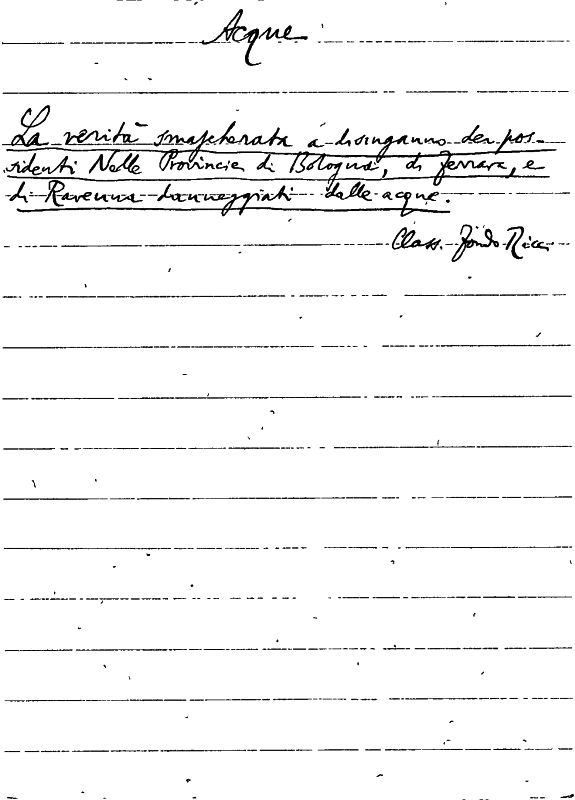 Acque
La verità smascherata a disinganno dei pos-
sidenti Nelle Provincie di Bologna, di Ferrara, e
di Ravenna danneggiati dalle acque.
Class. Fondo Ricci